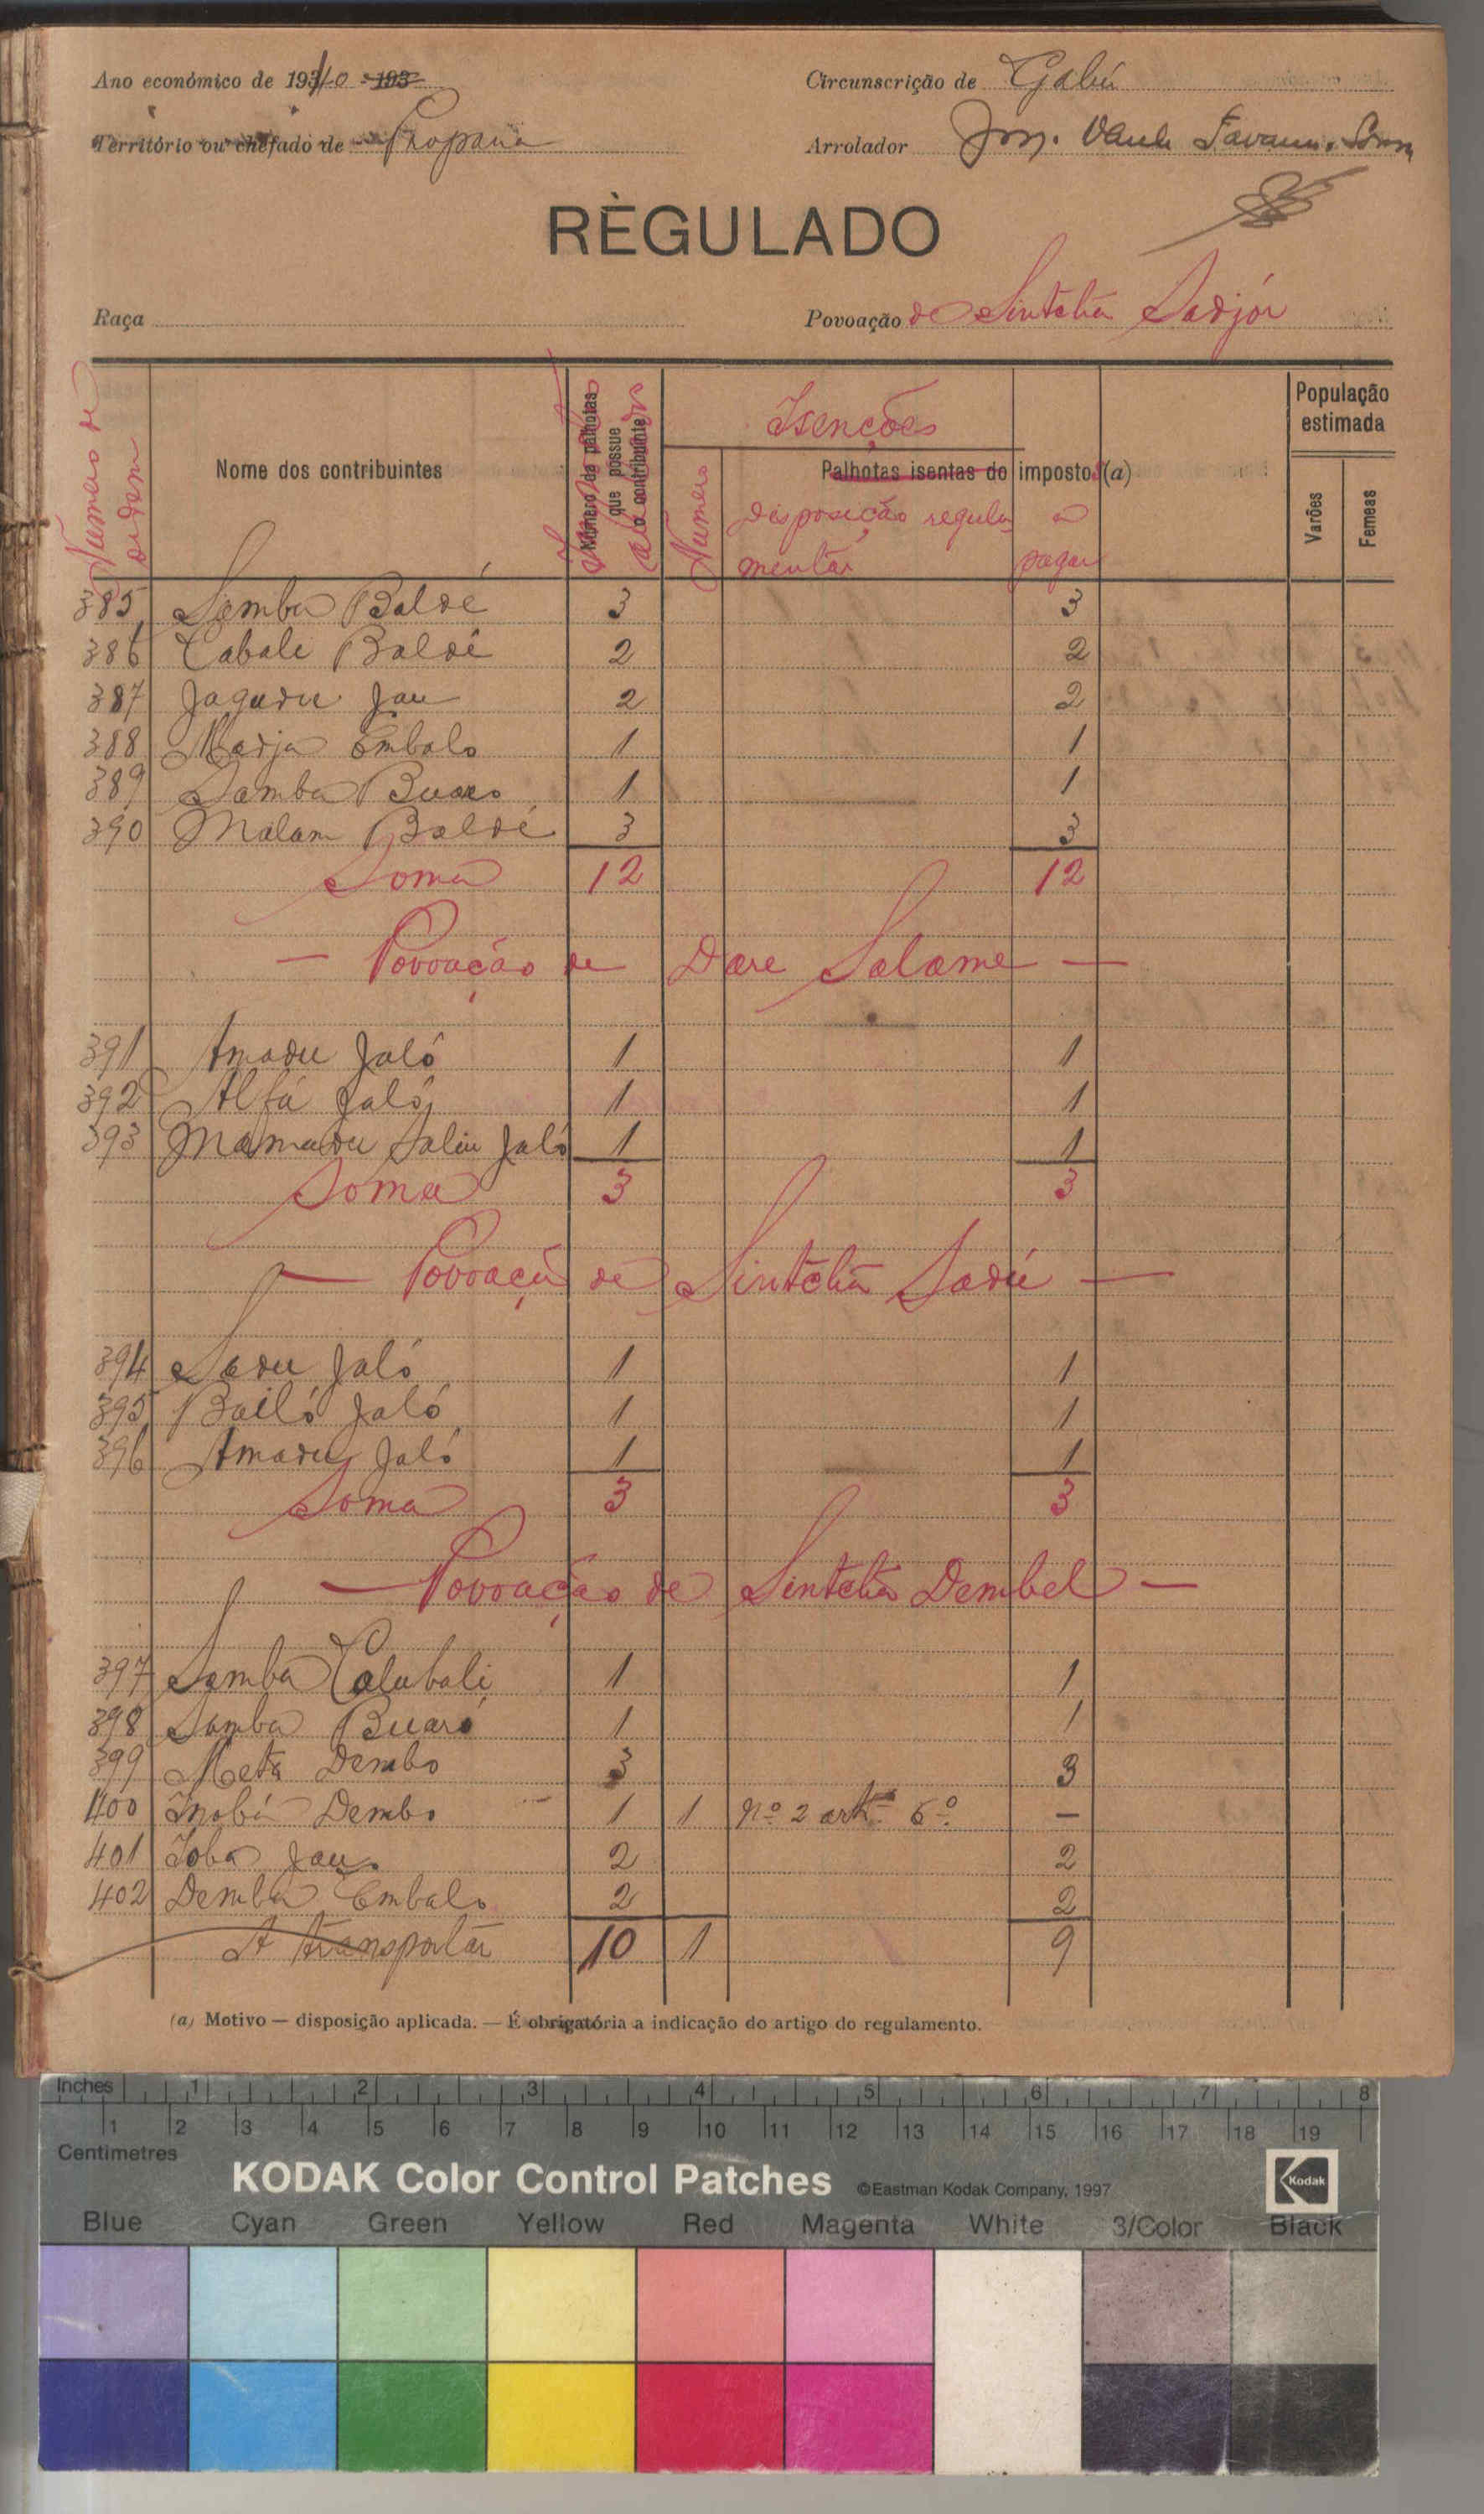 Ano económico de 1940 -193
Circunscrição de Gabú
Território ou chefado de Propana
Arrolador
RÈGULADO
Raça
Povoação de Sintchã Sadjór
Numero de ordem
Nome dos contribuintes
Número de palhotas que possue o contribuinte
Isenções
Palhotas isentas do imposto (a)
Numero
disposição regula
mentar
a
pagar
População estimada
Varões
Femeas
385 Samba Baldé 3 3
386 Cabale Baldé 2 2
387 Jagadu Jau 2 2
388 Madja Embalo 1 1
389 Samba Buaro 1 1
390 Malam Baldé 3 3
Soma 12 12
— Povoação de Dare Salame —
391 Amadu Jaló 1 1
392 Alfá Jaló 1 1
393 Mamadu Saliu Jaló 1 1
Soma 3 3
— Povoação de Sintchã Sadú —
394 Sadu Jaló 1 1
395 Bailó Jaló 1 1
396 Amadu Jaló 1 1
Soma 3 3
— Povoação de Sintchã Dembel —
397 Samba Colubali 1 1
398 Samba Buaró 1 1
399 Meta Dembo 3 3
400 Inobá Dembo 1 1 nº 2 artº 6º —
401 Ioba Jau 2 2
402 Demba Embalo 2 2
A transportar 10 1 9
(a) Motivo — disposição aplicada. — É obrigatória a indicação do artigo do regulamento.
Inches 1 2 3 4 5 6 7 8
1 2 3 4 5 6 7 8 9 10 11 12 13 14 15 16 17 18 19
Centimetres
KODAK Color Control Patches ©Eastman Kodak Company, 1997 Kodak
Blue Cyan Green Yellow Red Magenta White 3/Color Black